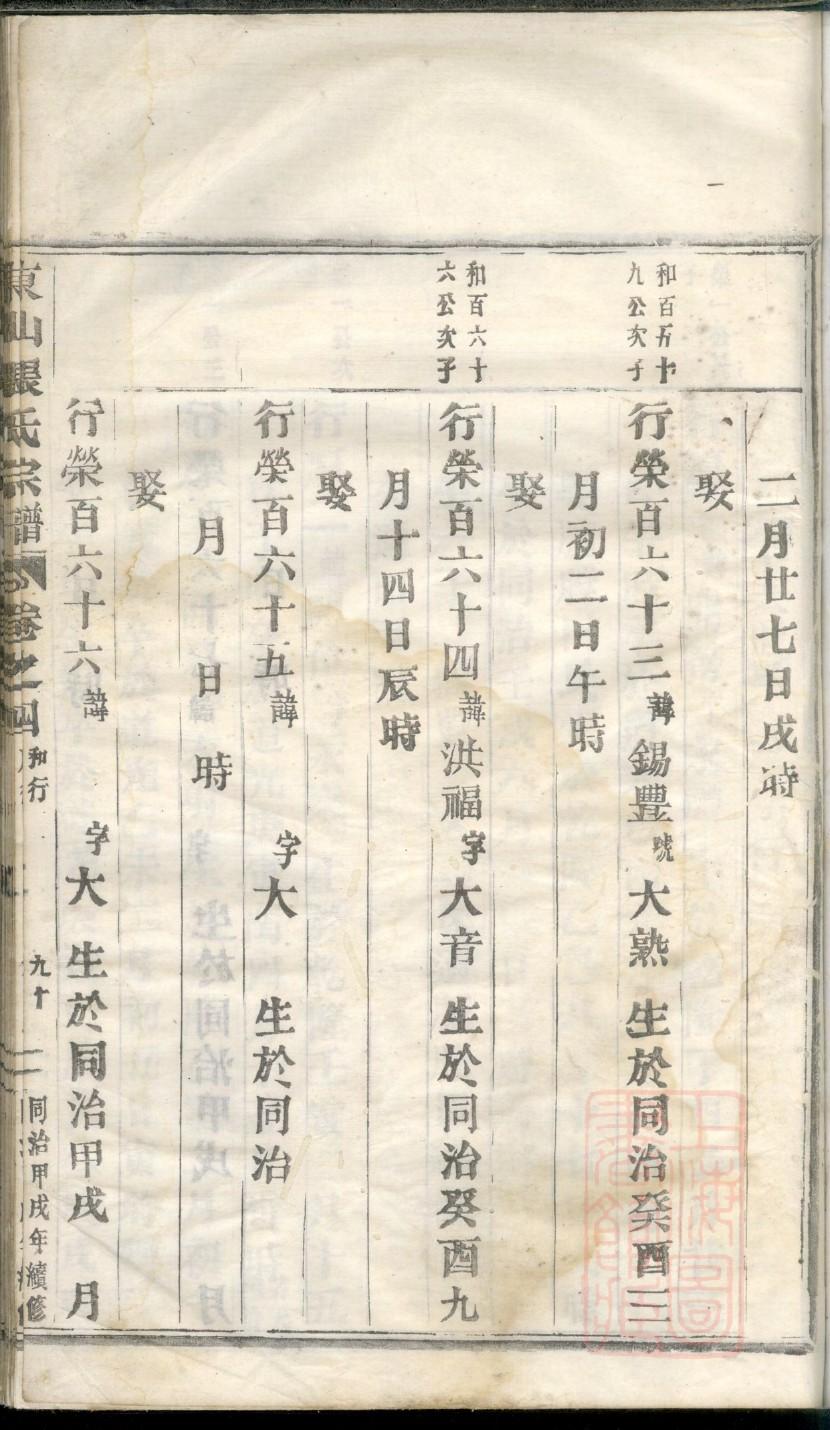 二月廿七日戌時
娶
和百五十
九公次子
行榮百六十三諱錫豐號大熟生於同治癸酉三
月初二日午時
娶
和百六十
六公次子
行榮百六十四諱洪福字大音生於同治癸酉九
月十四日辰時
娶
行榮百六十五諱 字大 生於同治
月 日 時
娶
行榮百六十六諱 字大 生於同治甲戌 月
東山張氏宗譜 卷之四 和行 九十 同治甲戌年續修